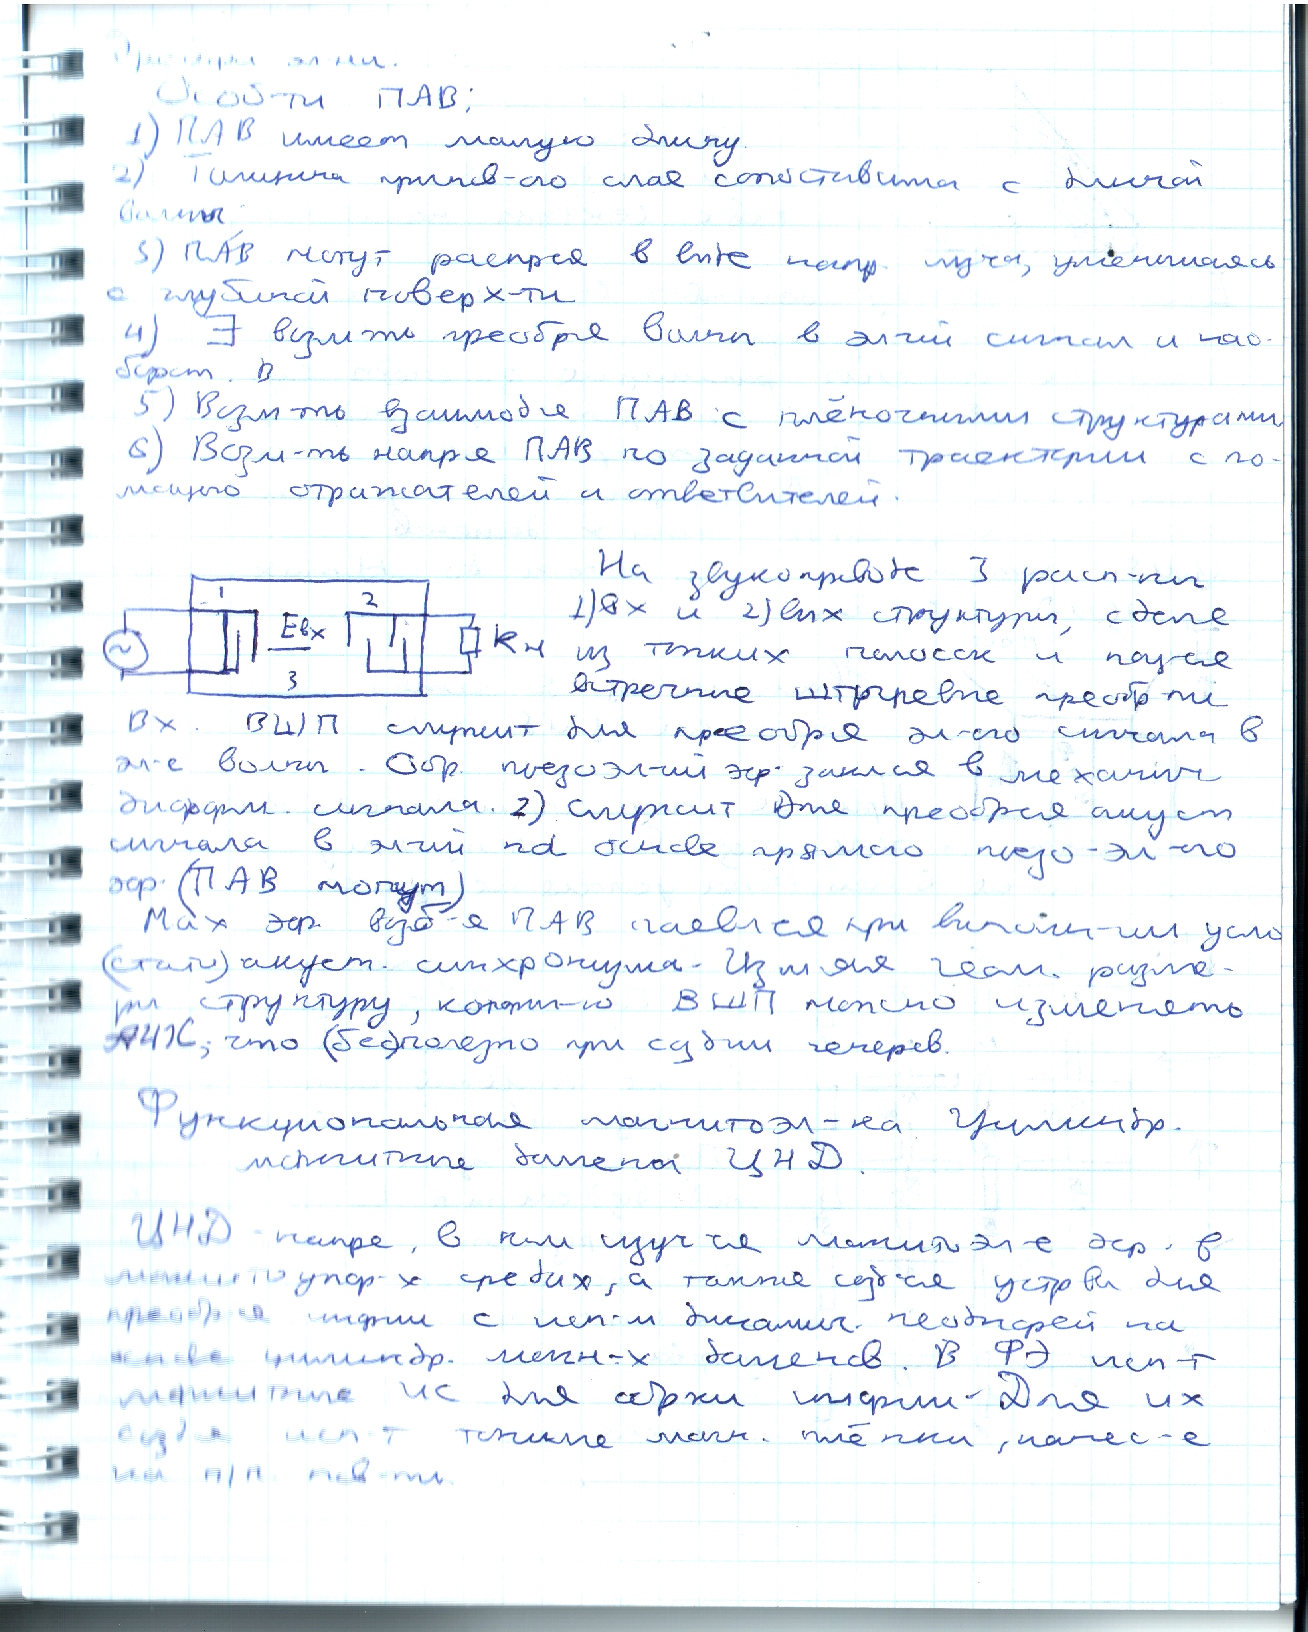 Особ-ти ПАВ:
1) ПАВ имеет малую длину
2) Толщина припов-ого слоя сопоставима с длиной
волны.
3) ПАВ могут распрся в виде напр. луча, уменьшаясь
с глубиной поверх-ти
4) ∃ возм-ть преобря волны в эл-ий сигнал и нао-
борот. В
5) Возм-ть взаимодея ПАВ с плёночными структурами
6) Возм-ть напря ПАВ по заданной траектрии с по-
мощью отражателей и ответвителей.
На звукопроводе 3 расп-ны
1) вх и 2) вых структуры, сделе
из тонких полосок и наз-ся
встречные штыревые преобр-ли
1
2
Евх
3
Rн
Вх. ВШП служит для преобря эл-ого сигнала в
эл-е волны. Обр. пьезоэл-ий эф. заклся в механич
дифформ. сигнала. 2) Служит для преобрся акуст
сигнала в эл-ий nd основе прямого пьезо-эл-ого
эф. (ПАВ могут)
Max эф. возб-я ПАВ при выполн-ии усло
(стати) акуст. синхронизма. Изменяя геом. разме-
ры структуру, ВШП можно изменять
АЧХ, что (бес)полезно при создии
Функциональная магнитоэл-ка Цилиндр.
магнитные домены ЦМД.
ЦМД - напре, в ком изучся магнитоэл-е эф. в
магнитоупор-х средах, а также создся устрва для
преобр-я инфии с исп-м динамич. неоднфей на
основе цилиндр. магн-х доменов. В ФЭ исп-т
магнитные ИС для обрки инфии. Для их
создя исп-т тонкие магн. плёнки, нанес-е
на п/п. пов-ть.